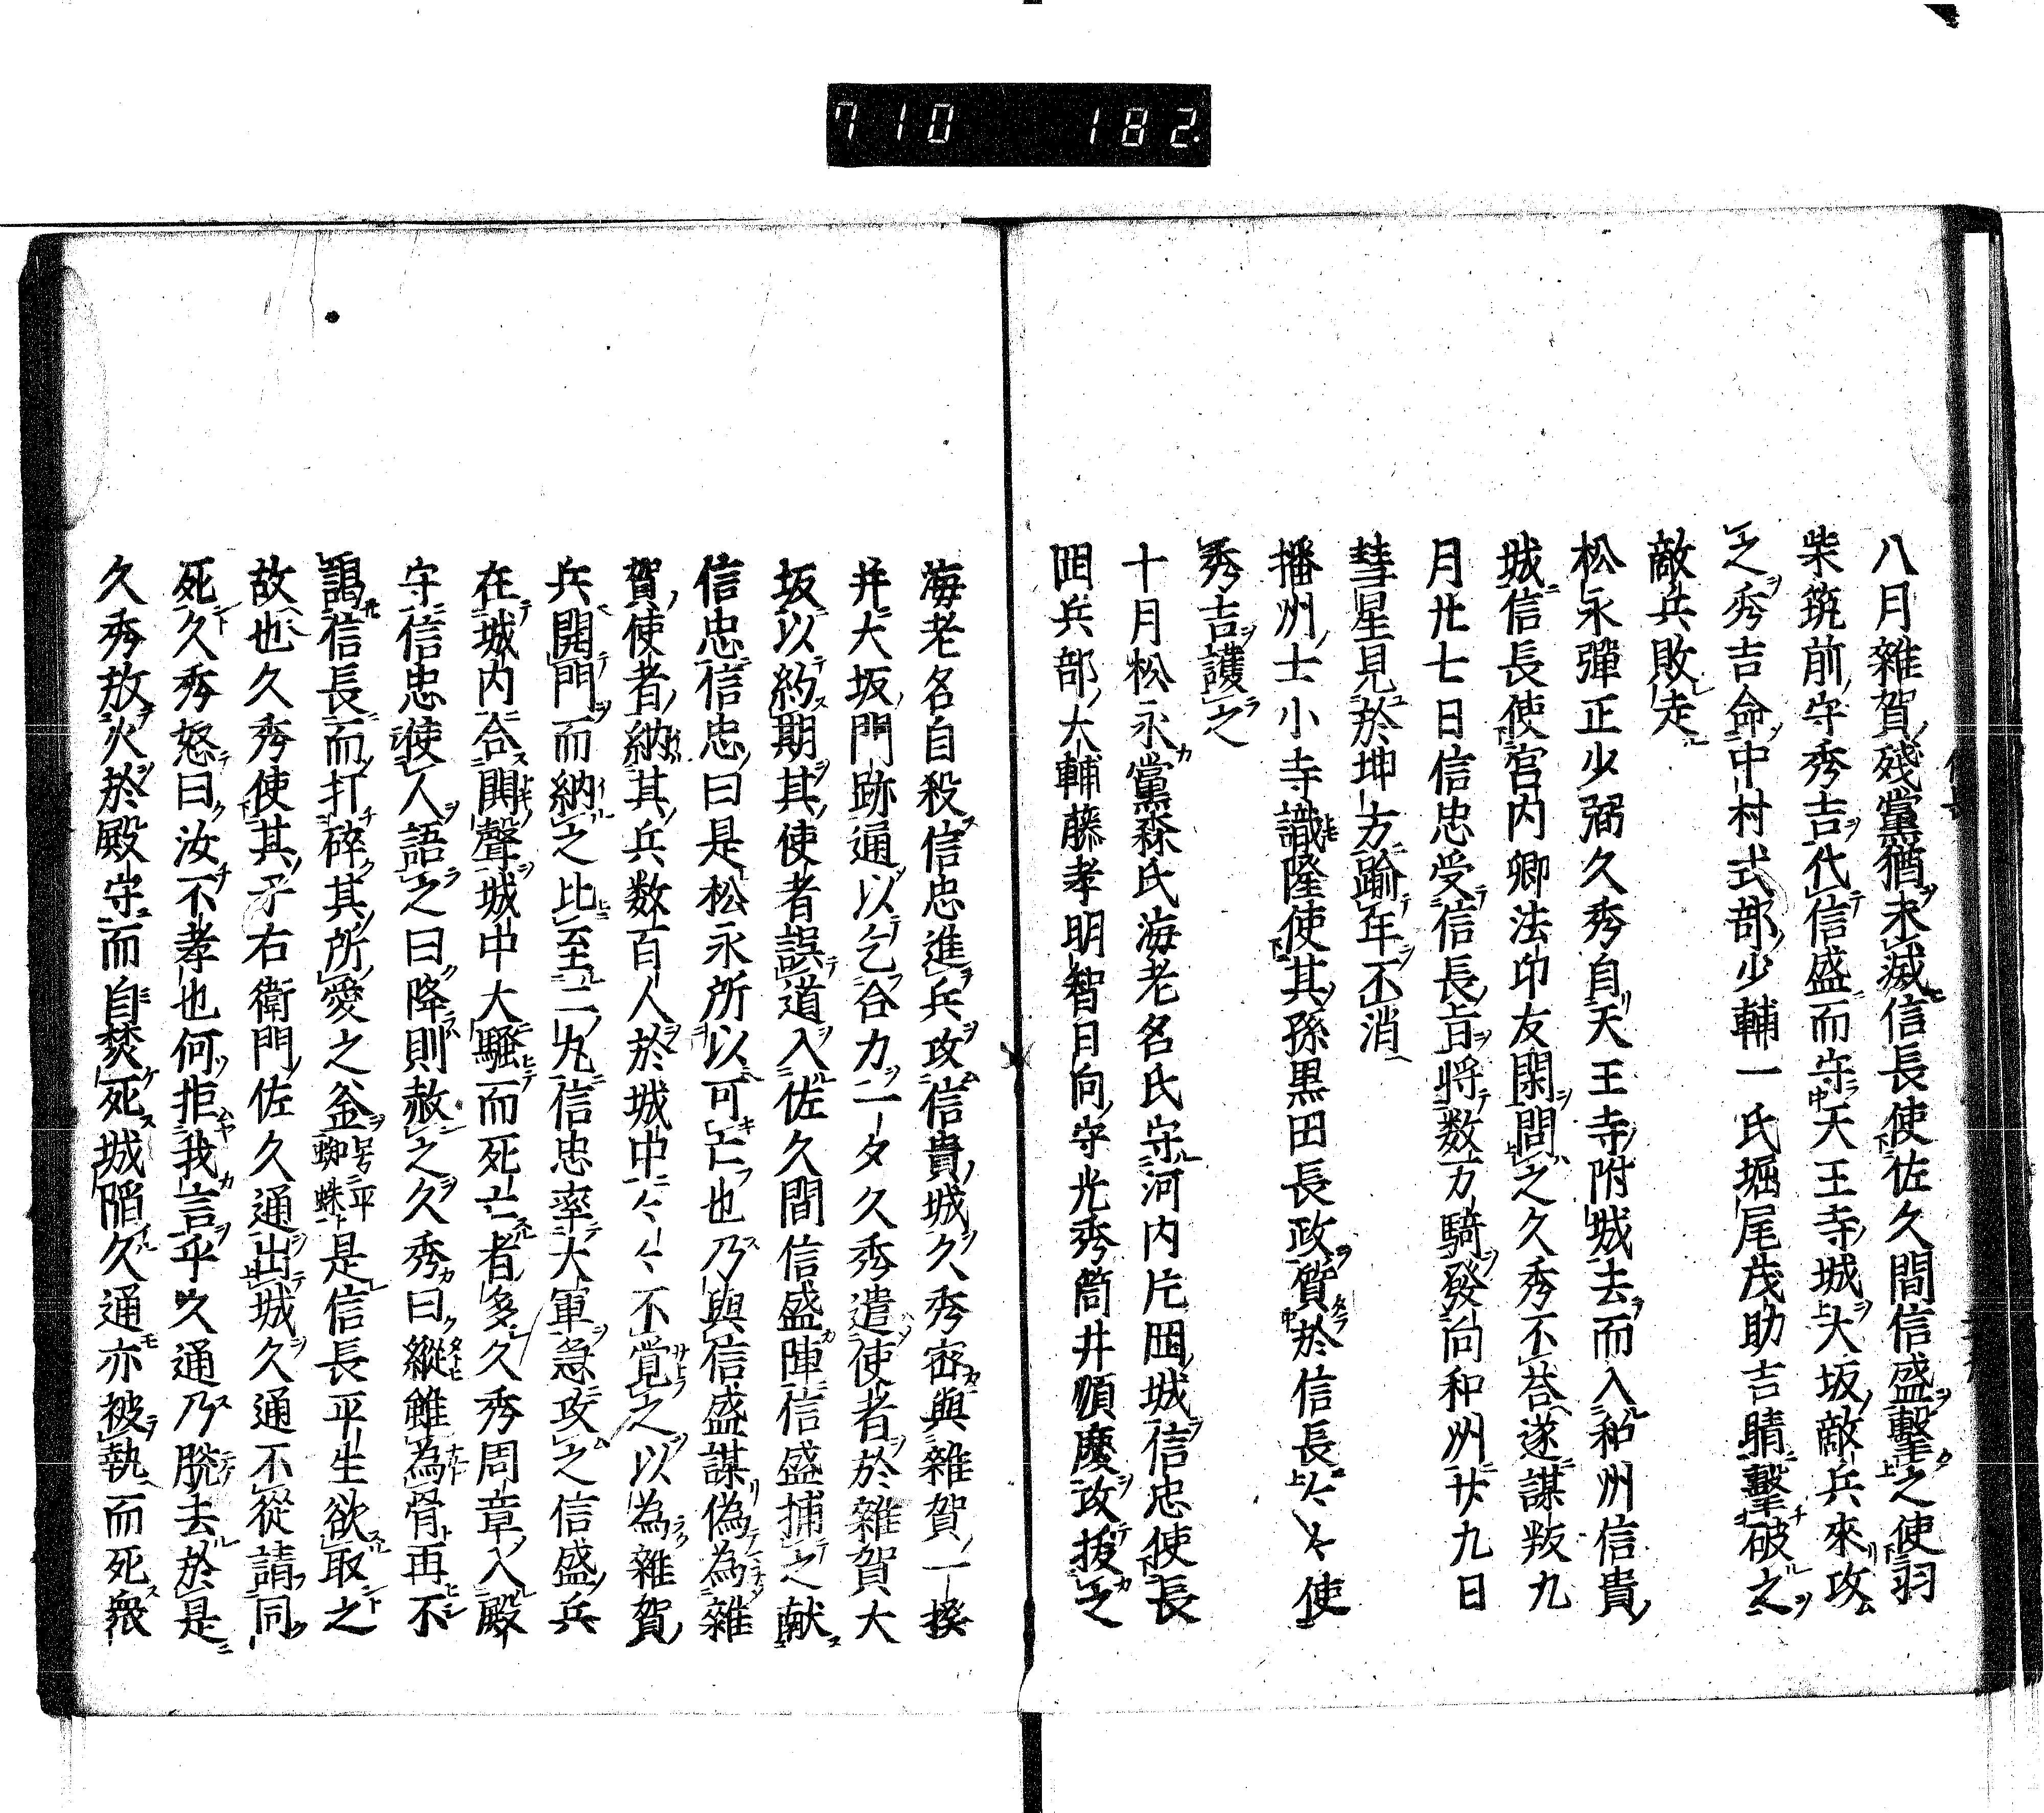 710 182
八月雜賀殘黨猶未滅信長使佐久間信盛擊之使羽
柴筑前守秀吉代信盛而守天王寺城大坂敵兵來攻
之秀吉命中村式部少輔一氏堀尾茂助吉晴擊破之
敵兵敗走
松永彈正少弼久秀自天王寺附城去而入和州信貴
城信長使宮内卿法印友閑問之久秀不荅遂謀叛九
月廿七日信忠受信長旨将数万騎發向和州廿九日
彗星見於坤方踰年不消
播州士小寺識隆使其孫黒田長政質於信長々々使
秀吉護之
十月松永黨森氏海老名氏守河内片岡城信忠使長
岡兵部大輔藤孝明智日向守光秀筒井順慶攻拔之
海老名自殺信忠進兵攻信貴城久秀密與雜賀一揆
并大坂門跡通以乞合力一夕久秀遣使者於雜賀大
坂以約期其使者誤道入佐久間信盛陣信盛捕之献
信忠信忠曰是松永所以可亡也乃與信盛謀偽為雜
賀使者納其兵数百人於城中々々不覚之以為雜賀
兵開門而納之比至二丸信忠率大軍急攻之信盛兵
在城内合鬨聲城中大騒而死亡者多久秀周章入殿
守信忠使人語之曰降則赦之久秀曰縱雖為骨再不
謁信長而打碎其所愛之釜号平蜘蛛是信長平生欲取之
故也久秀使其子右衛門佐久通出城久通不從請同
死久秀怒曰汝不孝也何拒我言乎久通乃脱去於是
久秀放火於殿守而自焚死城陥久通亦被執而死衆